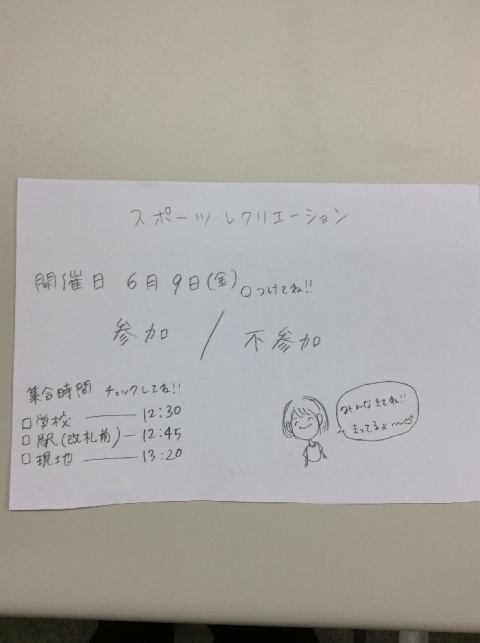 スポーツレクリエーション
開催日 6月9日(金) ○つけてね!!
参加 / 不参加
集合時間 チェックしてね!!
□学校 ―― 12:30
□駅(改札前) ― 12:45
□現地 ―― 13:20
みんなきてね!!
まってるよ〜♡